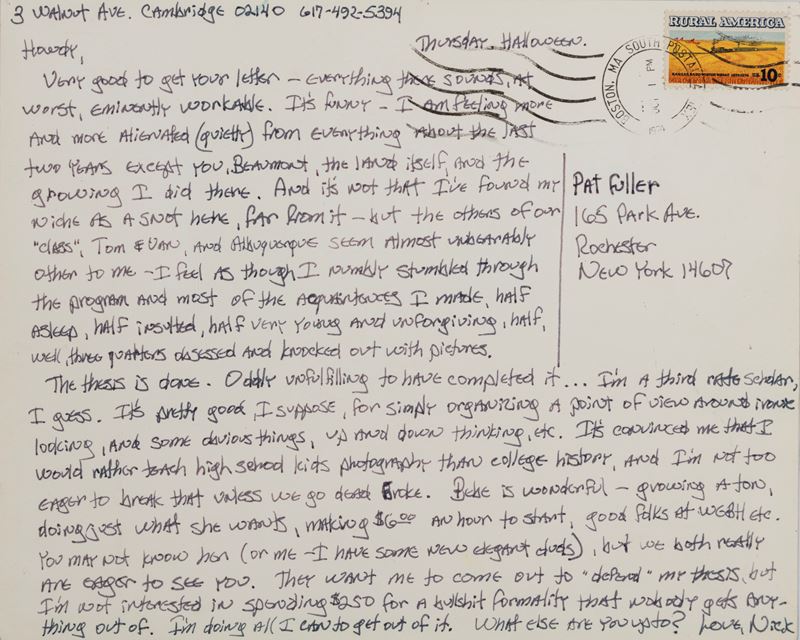 3 Walnut Ave. Cambridge 02140 617-492-5394
Thursday, Halloween.
RURAL AMERICA
10c
BOSTON, MA SOUTH POSTAL
PM
1974
Howdy,
Very good to get your letter – everything there sounds, at
worst, eminently workable. It's funny – I am feeling more
and more alienated (quietly) from everything about the last
two years except you, Beaumont, the land itself, and the
growing I did there. And it's not that I've found my
niche as a snot here, far from it – but the others of our
"class", Tom & Van, and Albuquerque seem almost unbearably
other to me – I feel as though I numbly stumbled through
the program and most of the acquaintances I made, half
asleep, half insulted, half very young and unforgiving, half,
well, three quarters obsessed and knocked out with pictures.
Pat Fuller
165 Park Ave.
Rochester
New York 14607
The thesis is done. Oddly unfulfilling to have completed it... I'm a third rate scholar,
I guess. It's pretty good, I suppose, for simply organizing a point of view around ironic
looking, and some obvious things, up and down thinking, etc. It's convinced me that I
would rather teach high school kids photography than college history, and I'm not too
eager to break that unless we go dead broke. Bebe is wonderful – growing a ton,
doing just what she wants, making $6.00 an hour to start, good folks at WGBH etc.
You may not know her (or me – I have some new elegant duds), but we both really
are eager to see you. They want me to come out to "defend" my thesis, but
I'm not interested in spending $250 for a bullshit formality that nobody gets any-
thing out of. I'm doing all I can to get out of it. What else are you up to? Love, Nick